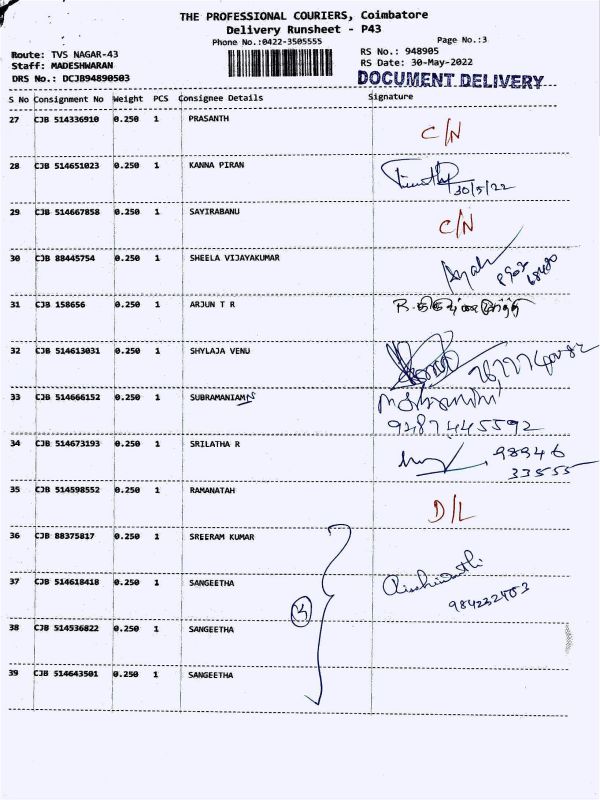 THE PROFESSIONAL COURIERS, Coimbatore
Delivery Runsheet - P43
Phone No.:0422-3505555
Page No.:3
Route: TVS NAGAR-43
RS No.: 948905
Staff: MADESHWARAN
RS Date: 30-May-2022
DRS No.: DCJB94890503
DOCUMENT DELIVERY
S No Consignment No Weight PCS Consignee Details Signature
27 CJB 514336910 0.250 1 PRASANTH C/N
28 CJB 514651023 0.250 1 KANNA PIRAN 30/5/22
29 CJB 514667858 0.250 1 SAYIRABANU C/N
30 CJB 88445754 0.250 1 SHEELA VIJAYAKUMAR
31 CJB 158656 0.250 1 ARJUN T R
32 CJB 514613031 0.250 1 SHYLAJA VENU
33 CJB 514666152 0.250 1 SUBRAMANIAM N
9487445592
34 CJB 514673193 0.250 1 SRILATHA R 98946
33555
35 CJB 514598552 0.250 1 RAMANATAH D/L
36 CJB 88375817 0.250 1 SREERAM KUMAR
37 CJB 514618418 0.250 1 SANGEETHA
38 CJB 514536822 0.250 1 SANGEETHA
39 CJB 514643501 0.250 1 SANGEETHA